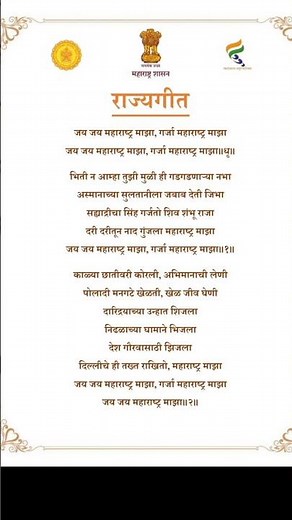 महाराष्ट्र शासन
राज्यगीत
जय जय महाराष्ट्र माझा, गर्जा महाराष्ट्र माझा
जय जय महाराष्ट्र माझा, गर्जा महाराष्ट्र माझा॥धृ॥
भिती न आम्हा तुझी मुळी ही गडगडणाऱ्या नभा
अस्मानाच्या सुलतानीला जवाब देती जिभा
सह्याद्रीचा सिंह गर्जतो शिव शंभू राजा
दरी दरीतून नाद गुंजला महाराष्ट्र माझा
जय जय महाराष्ट्र माझा, गर्जा महाराष्ट्र माझा॥१॥
काळ्या छातीवरी कोरली, अभिमानाची लेणी
पोलादी मनगटे खेळती, खेळ जीव घेणी
दारिद्र्याच्या उन्हात शिजला
निढळाच्या घामाने भिजला
देश गौरवासाठी झिजला
दिल्लीचे ही तख्त राखितो, महाराष्ट्र माझा
जय जय महाराष्ट्र माझा, गर्जा महाराष्ट्र माझा
जय जय महाराष्ट्र माझा॥२॥